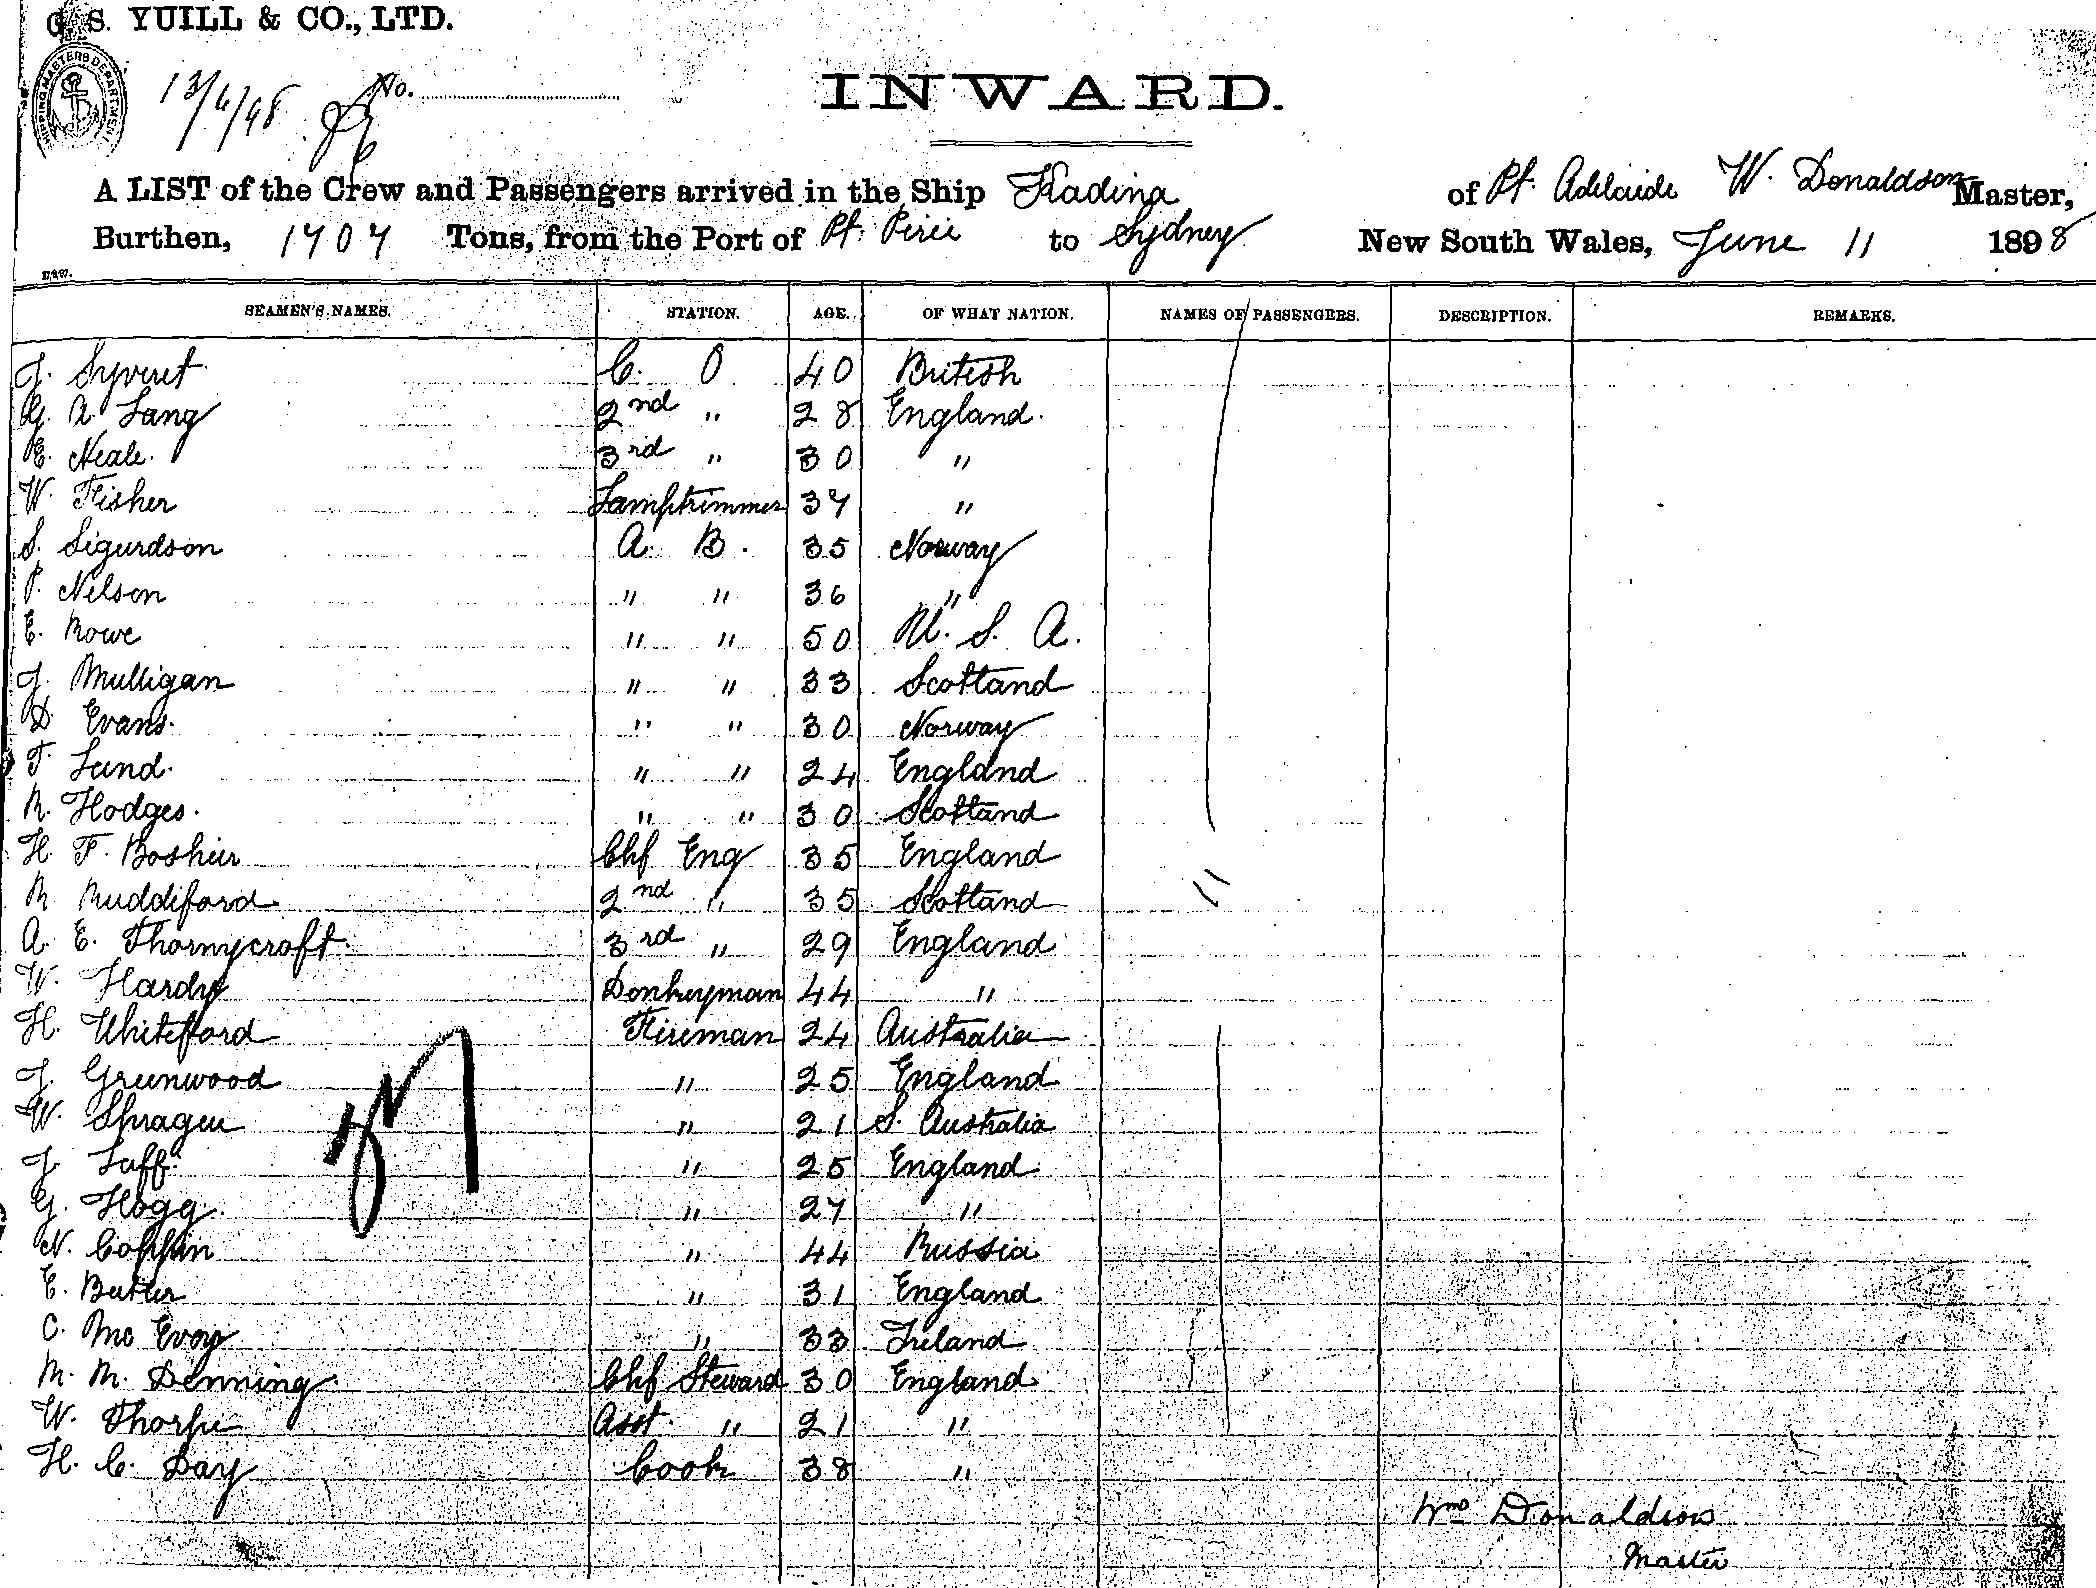 G. S. YUILL & CO., LTD.
SHIPPING MASTERS DEPARTMENT
13/6/98 No.
INWARD.
A LIST of the Crew and Passengers arrived in the Ship Kadina of Pt. Adelaide W. Donaldson Master,
Burthen, 1707 Tons, from the Port of Pt. Pirie to Sydney New South Wales, June 11 1898
SEAMEN'S NAMES. STATION. AGE. OF WHAT NATION. NAMES OF PASSENGERS. DESCRIPTION. REMARKS.
J. Syvret C. O 40 British
G. A. Lang 2nd " 28 England
E. Neale. 3rd " 30 "
W. Fisher Lamptrimmer 37 "
S. Sigurdson A. B. 35 Norway
P. Nelson " " 36 "
E. Rowe " " 50 U. S. A.
J. Mulligan " " 33 Scotland
D. Evans. " " 30 Norway
T. Lund. " " 24 England
R. Hodges. " " 30 Scotland
H. F. Bosheir Chf Eng 35 England
R Ruddiford 2nd " 35 Scotland
A. E. Thornycroft 3rd " 29 England
W. Hardy Donkeyman 44 "
H. Whitefford Fireman 24 Australia
J. Greenwood " 25 England
W. Spragu " 21 S. Australia
J. Taff. " 25 England
G. Hogg " 27 "
N. Coppin " 44 Russia
E. Butler " 31 England
C. Mc Evoy " 33 Ireland
M. M. Denning Chf Steward 30 England
W. Thorpe Asst. " 21 "
H. C. Day Cook 38 "
Wm Donaldson
Master